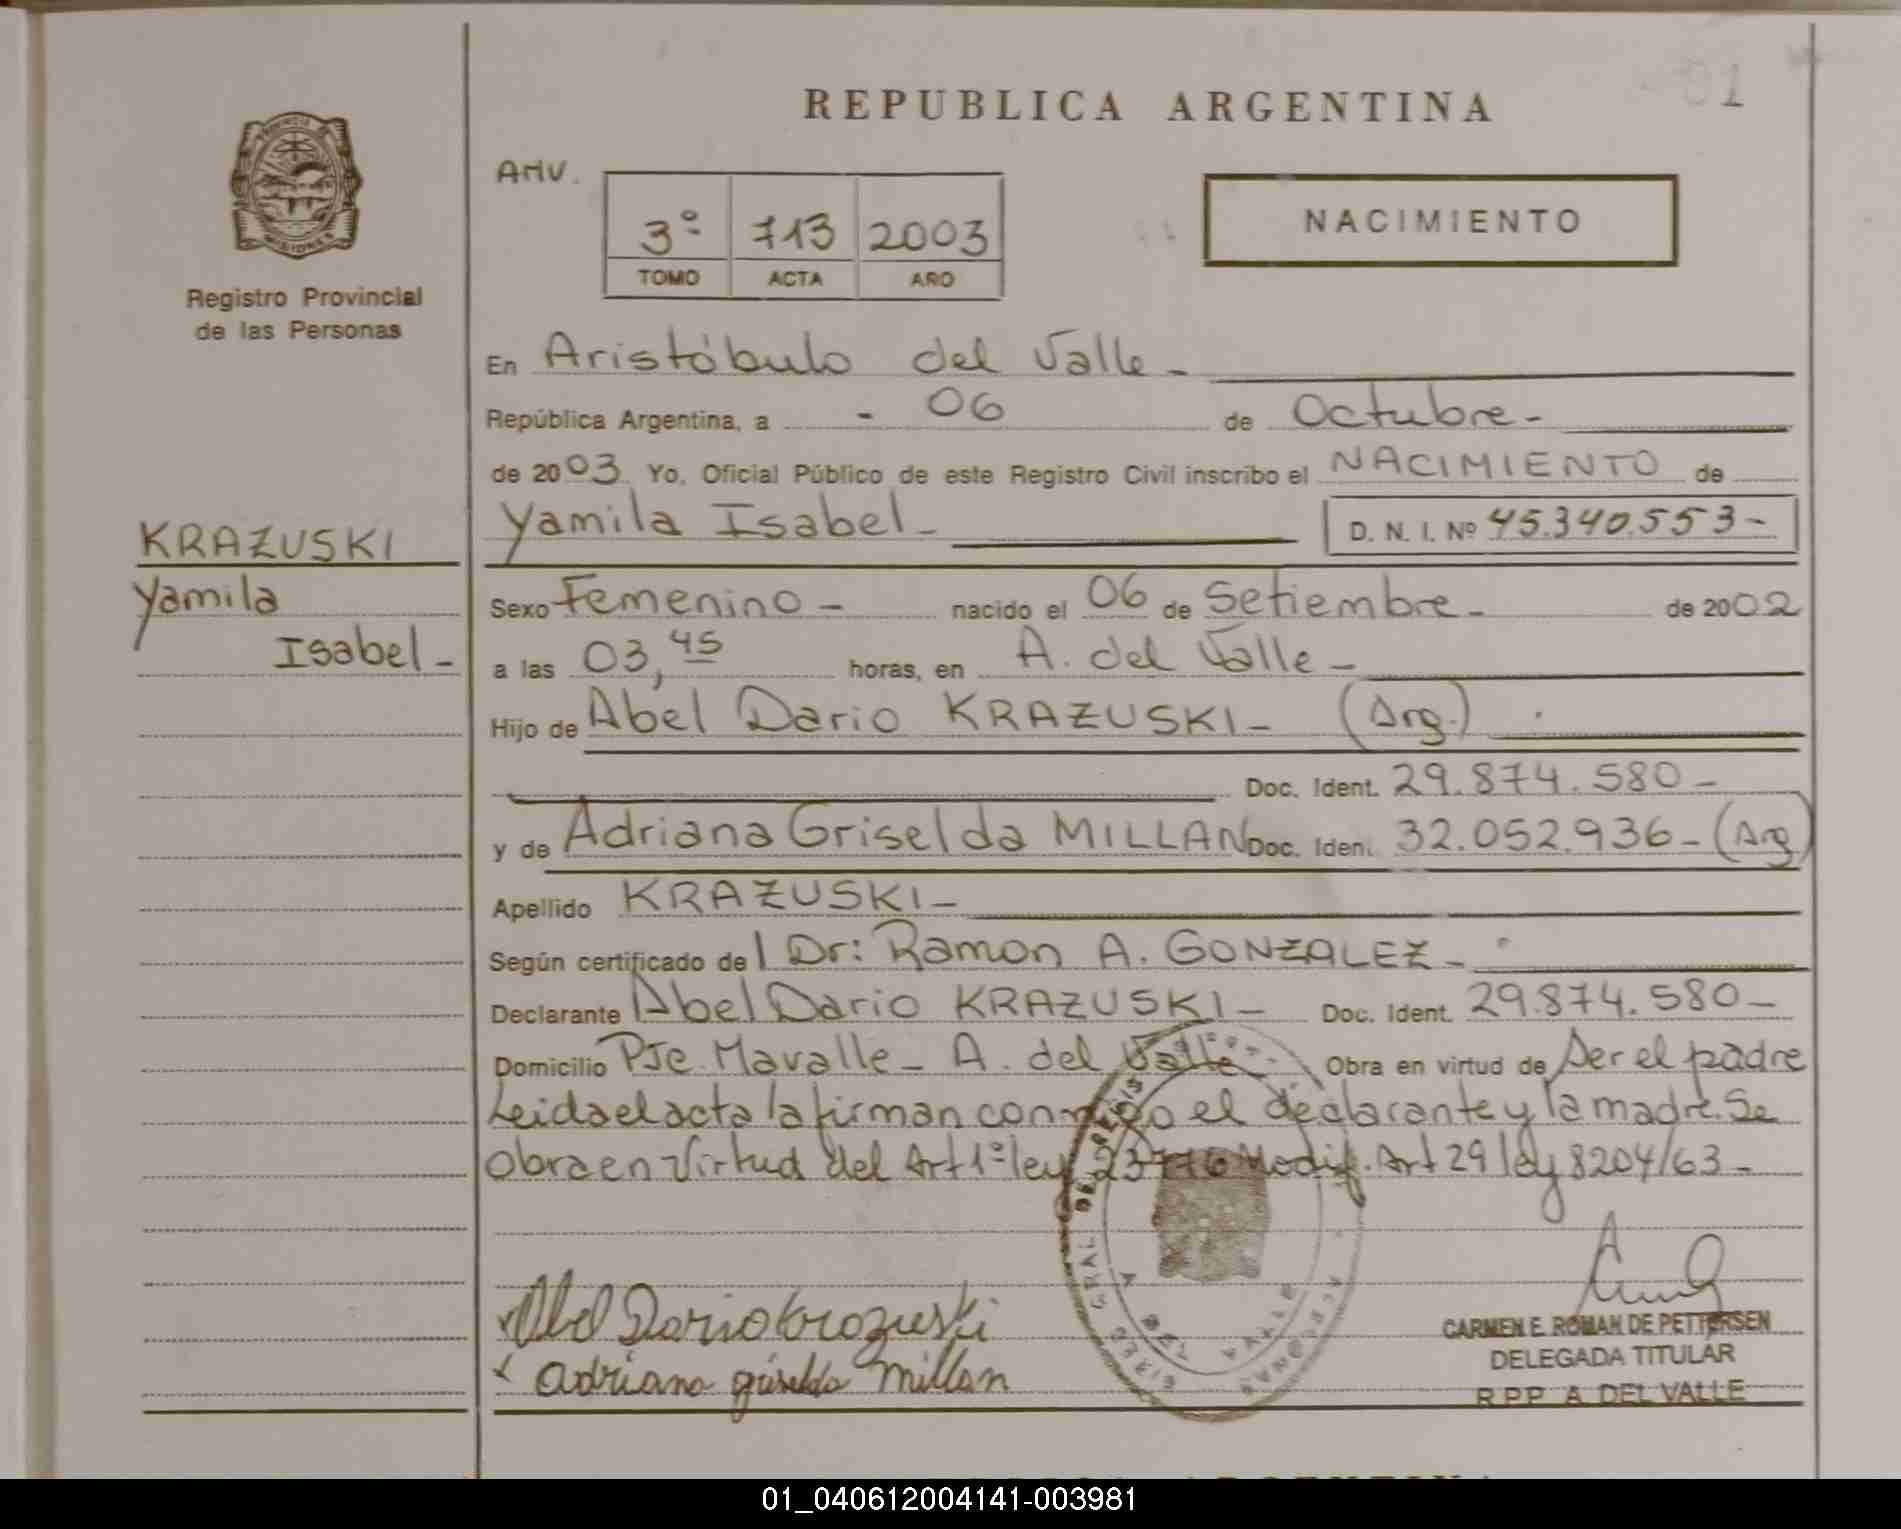 01
REPUBLICA ARGENTINA
AMV.
3º 713 2003
TOMO ACTA AÑO
NACIMIENTO
Registro Provincial
de las Personas
En Aristóbulo del Valle -
República Argentina, a - 06 de Octubre -
de 2003 Yo, Oficial Público de este Registro Civil inscribo el NACIMIENTO de
Yamila Isabel - D. N. I. Nº 45.340.553 -
KRAZUSKI
Yamila
Isabel -
Sexo Femenino - nacido el 06 de Setiembre - de 2002
a las 03,45 horas, en A. del Valle -
Hijo de Abel Dario KRAZUSKI - (Arg.)
Doc. Ident. 29.874.580 -
y de Adriana Griselda MILLAN Doc. Ident. 32.052.936 - (Arg
Apellido KRAZUSKI -
Según certificado del Dr: Ramon A. GONZALEZ -
Declarante Abel Dario KRAZUSKI - Doc. Ident. 29.874.580 -
Domicilio Pje. Mavalle - A. del Valle Obra en virtud de Ser el padre
Leida el acta la firman conmigo el declarante y la madre. Se
obra en virtud del Art 1º ley 23776 Modif. Art 29 ley 8204/63 -
Abel Dario Krazuski
x adriana griselda millan
CARMEN E. ROMAN DE PETTERSEN
DELEGADA TITULAR
R.P.P. A. DEL VALLE
01_040612004141-003981